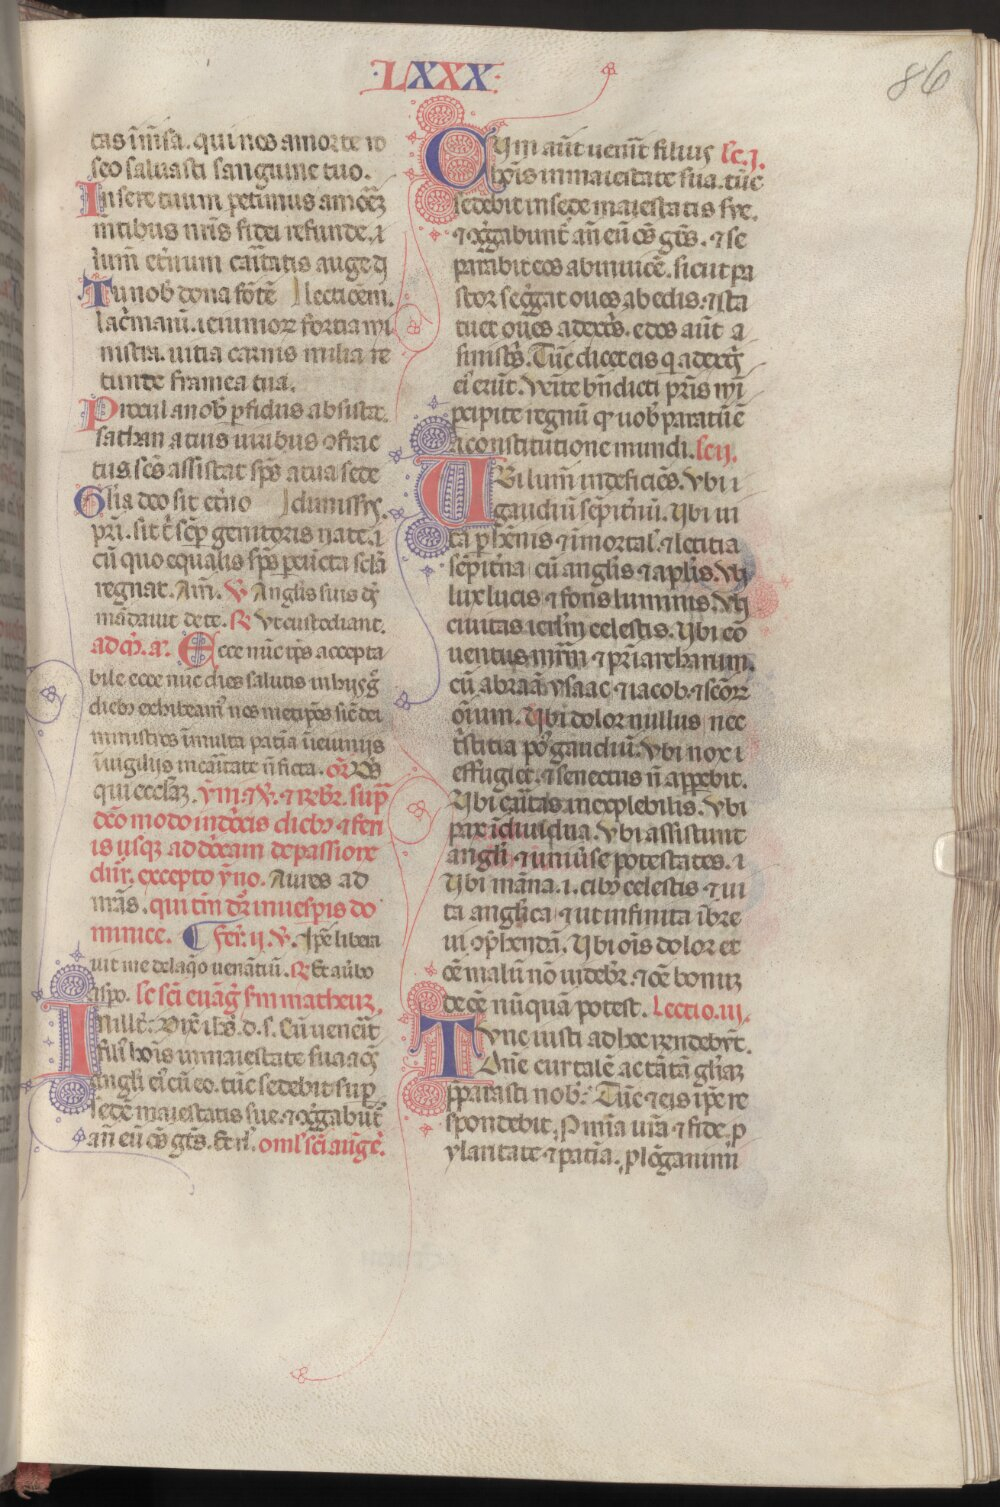 ·LXXX·
86
tas im̄ēsa. qui nos amorte ro
seo saluasti sanguine tuo.
Insere tuum petimus amorē
mtibus nr̄is fidei refunde. i
lum̄ et̄num car̄itatis auge
Tu nob dona fōtē lecticēm.
lacr̄marū. ieiunior̄ fortia mi
nistra. uitia carnis milia re
tunde framea tua.
Procul a nob p̄fidus absistat.
sathan a tuis uiribus ɔfrac
tus. scs̄ assistat sps̄ a tua sede
Glīa deo sit et̄no dimissus.
pr̄i. sit t̄ sēp genitoris nate. i
cū quo equalis sps̄ p̄ cūcta scl̄a
regnat. Am̄. V̄ Angl̄is suis dš
mādauit de te. R̄ Vt custodiant.
ad m̄. a. Ecce nūc tp̄s accepta
bile ecce nūc dies salutis in hijs g̊
dieb̄ exhibeam nos metip̄os sic̄ dei
ministros ī multa patīa ī ieiunijs
ī uigilijs in car̄itate n̄ ficta. or̄. Ds̄
qui eccl̄az. ym̄. V̄. ⁊ R̄br̄. sup̄
dc̄o modo in dōcis dieb̄ ⁊ feri
is usq̨ ad dōcam de passione
dn̄i. excepto yn̄o. Aures ad
nr̄as. qui tm̄ dr̄ in uesp̄is do
minice. Fer̄. ij. V̄. Ip̄e libera
uit me de laq̊o uenātiū. R̄ Et a ūbo
asp̄o. Lc̄ sc̄i euāḡ sm̄ matheuz.
Inill̄t. Dix̄ ihs̄. d. s. Cū uen̄it
fili hoīs in maiestate sua ⁊ oēs
angli ei cū eo. tūc sedebit sup̄
sedē maiestatis sue. ⁊ ɔg̊gabūt̄
an̄ eū oēs gt̄s. Et rl̄. oml̄ sc̄i aug̊.
Cum aūt uen̄it filius lc̄. j.
hoīs in maiestate sua. tūc
sedebit in sede maiestatis sue.
⁊ ɔg̊gabunt̄ an̄ eū oēs gt̄s. ⁊ se
parabit eos abinuicē. sicut pa
stor seg̊gat oues ab edis. ⁊ sta
tuet oues a dext̄s. edos aūt a
sinist̄s. Tūc dicet eis q̇ a dext̄s
ei erūt. Venite bn̄dicti pr̄is mī
p̄cipite regnū q̊ uob̄ paratū ē
a constitutione mundi. Lc. ij.
Ubi lum̄ indeficiēs. Vbi i
gaudiū sēpit̄nū. Ubi ui
ta p̄hēnis ⁊ īmortal̄. ⁊ letitia
sēpit̄na cū angl̄is ⁊ apl̄is. Vbi
lux lucis ⁊ fons luminis. Vbi
ciuitas ierl̄m celestis. Ubi cō
uentus mr̄m ⁊ pr̄iarcharum.
cū abraā ysaac ⁊ iacob. ⁊ scōr̄
oīum. Ubi dolor nullus nec
tristitia po gaudiū. Vbi nox i
effugiet. ⁊ senectus n̄ app̄ebit.
Ubi car̄itas inexplebilis. Vbi
pax īdiuidua. Vbi assistunt
angli ⁊ uniūse potestates. i
Ubi māna. i. cib̄ celestis ⁊ ui
ta angl̄ica. ⁊ ut infinita ī bre
ui ɔp̄hendā. Ubi oīs dolor et
oē malū nō uidebr̄. ⁊ oē bonuz
deēē nūquā potest. Lectio. iij.
Tunc iusti ad hec rendebūt.
Dn̄e cur talē ac tātā gl̄iaz
p̄parasti nob̄. Tūc ⁊ eis ip̄e re
spondebit. P mīa ur̄a ⁊ fide. p
ylaritate ⁊ patīa. p lōganimi